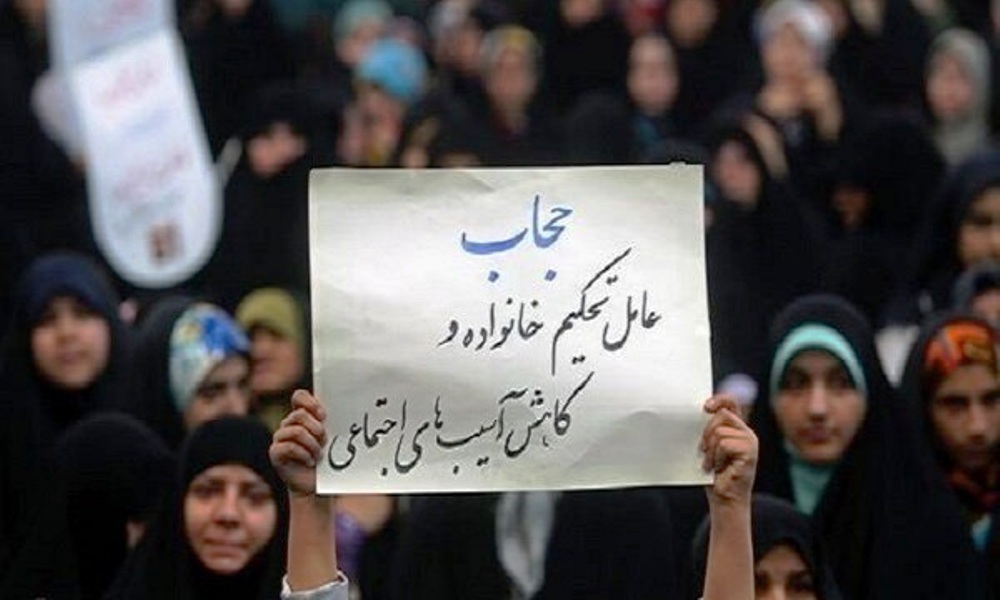 حجاب
عامل تحکیم خانواده و
کاهش آسیب‌های اجتماعی